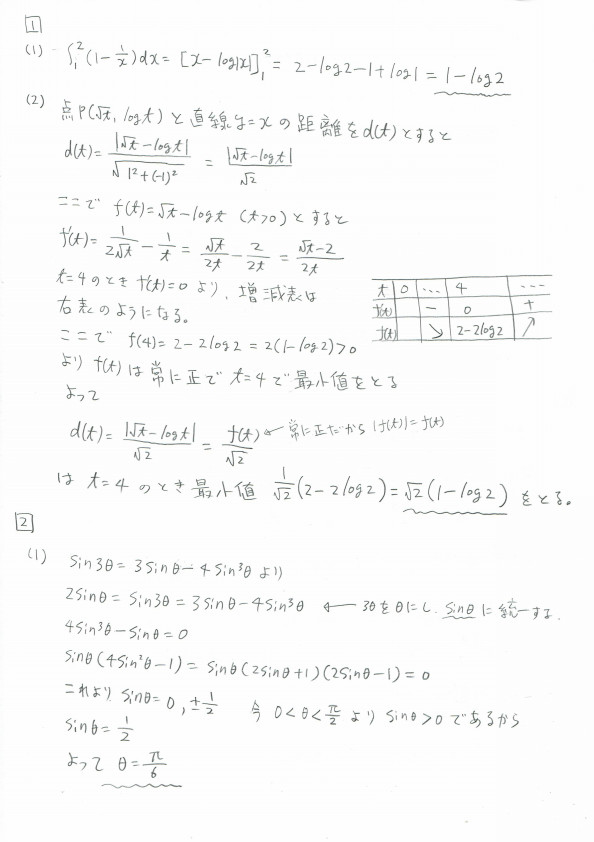 1
(1) ∫₁²(1-1/x)dx = [x-log|x|]₁² = 2-log2-1+log1 = 1-log2
(2) 点P(√t, logt)と直線y=xの距離をd(t)とすると
d(t)= |√t-logt| / √(1²+(-1)²) = |√t-logt| / √2
ここで f(t)=√t-logt (t>0) とすると
f'(t)= 1/(2√t) - 1/t = √t/2t - 2/2t = (√t-2)/2t
t=4のとき f'(t)=0 より、増減表は
右表のようになる。
t 0 … 4 …
f'(t) - 0 +
f(t) ↘ 2-2log2 ↗
ここで f(4)=2-2log2=2(1-log2)>0
より f(t)は常に正で t=4で最小値をとる
よって
d(t)= |√t-logt| / √2 = f(t)/√2 ← 常に正だから |f(t)|=f(t)
は t=4 のとき最小値 1/√2 (2-2log2)=√2(1-log2) をとる。
2
(1) sin3θ=3sinθ-4sin³θ より
2sinθ=sin3θ=3sinθ-4sin³θ ← 3θをθにし、sinθに統一する.
4sin³θ-sinθ=0
sinθ(4sin²θ-1)=sinθ(2sinθ+1)(2sinθ-1)=0
これより sinθ=0, ±1/2 今 0<θ<π/2 より sinθ>0であるから
sinθ=1/2
よって θ=π/6